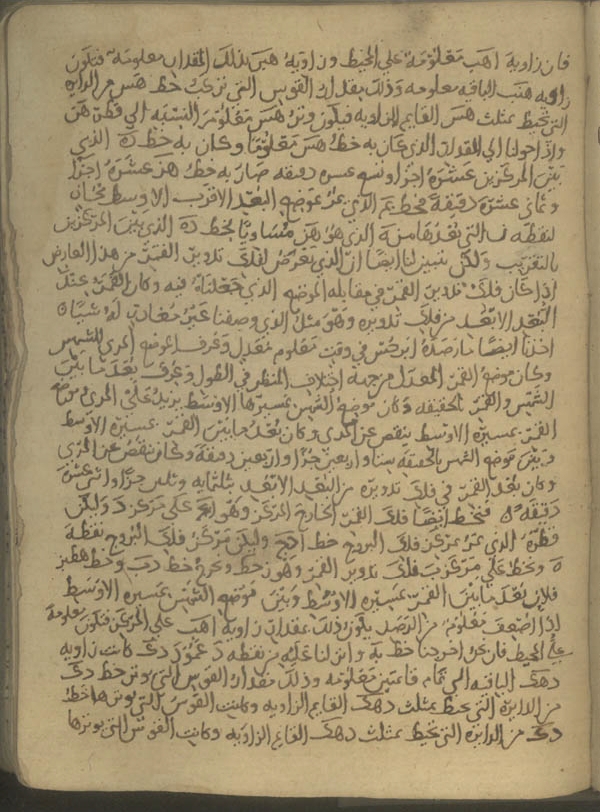 فان زاوية اهب معلومة علي المحيط وزاوية هبس بذلك المقدار معلومة فتكون
زاوية هسب الباقيه معلومه وكذلك بمقدار القوس التي يوترها خط هس من الدايره
التي تحيط بمثلث هس القايم الزاويه فيكون وتر هس معلوم النسبه الي قطره هب
واذا حولنا الي المقدار الذي كان به خط هس معلوما وكان به خط ده الذي
بين المركزين عشرة اجزا وتسع عشره دقيقه صار به خط هز عشرة اجزا
وثماني عشرة دقيقة فخط بم الذي يمر بموضع البعد الاقرب الاوسط يحاذي
لنقطه ن التي بعدها من ه الذي هو هز مساويا لخط ده الذي بين المركزين
بالتقريب ولكن نبين لنا ايضا ان الذي يعرض لفلك تدوير القمر من هذا العارض
اذا كان فلك تدوير القمر في مقابله الموضع الذي جعلناه فيه وكان القمر عند
البعد الابعد من فلك تدويره وهو مثل الذي وصفنا غير مغادر له شيا
اخذنا ايضا ما رصده ابرخس في وقت معلوم معدل وعرف الموضع المري للشمس
وكان موضع القمر المعدل من جهه اختلاف المنظر في الطول وعرف بعد ما بين
الشمس والقمر بالحقيقه وكان موضع الشمس بمسيرها الاوسط يزيد علي المري
القمر بمسيره الاوسط ينقص عن المري وكان بعد ما بين القمر بمسيره الاوسط
وبين موضع الشمس بالحقيقه ستا واربعين جزا واربعين دقيقة وكان ينقص عن المري
وكان بعد القمر في فلك تدويره من البعد الابعد ثلثمايه وثلثه وثلثين جزا واثني عشرة
دقيقة فنخط ايضا فلك القمر الخارج المركز وهو ابج علي مركز د وليكن
قطره الذي يمر بمركز فلك البروج خط ادج وليكن مركز فلك البروج نقطة
ه ونخط علي مركز ب فلك تدوير القمر وهو زحط ونخرج خط دب وخط هطبز
فلان بعد ما بين القمر بمسيره الاوسط وبين موضع الشمس بمسيره الاوسط
اذا اضعف معلوم من الرصد يكون ذلك بمقدار زاوية اهب علي المركز فتكون معلومة
علي المحيط فان نحن اخرجنا خط به وانزلنا عليه من نقطه د عمود دك كانت زاويه
دهك الباقيه الي تمام قايمتين معلومه وذلك مقدار القوس التي يوتر خط دك
من الدايرة التي تحيط بمثلث دهك القايم الزاويه وكانت القوس التي يوترها خط
دك من الدايرة التي تحيط بمثلث دهك القايم الزاويه وكانت القوس التي يوترها